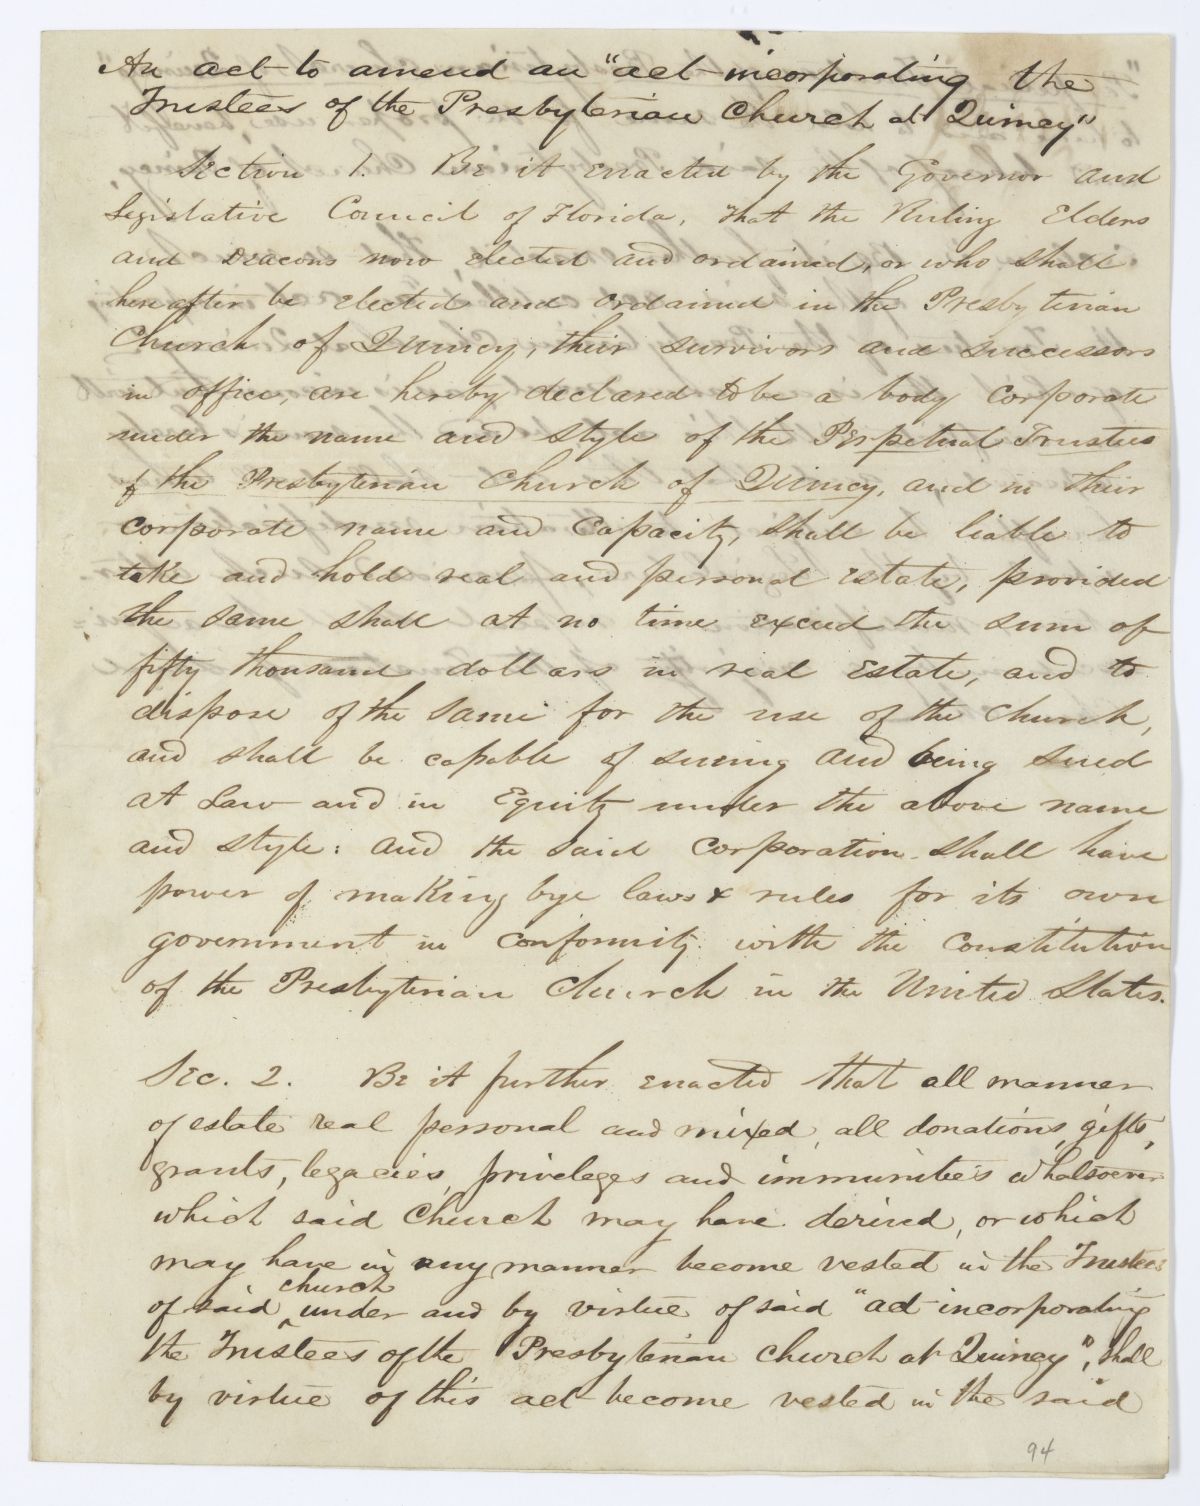 An act to amend an "act incorporating the
Trustees of the Presbyterian Church at Quincy"
Section 1. Be it enacted by the Governor and
Legislative Council of Florida, That the Ruling Elders
and Deacons now elected and ordained, or who shall
hereafter be elected and ordained in the Presbyterian
Church of Quincy, their survivors and successors
in office, are hereby declared to be a body Corporate
under the name and style of the Perpetual Trustees
of the Presbyterian Church of Quincy, and in their
corporate name and Capacity, shall be liable to
take and hold real and personal estate, provided
the same shall at no time exceed the sum of
fifty thousand dollars in real Estate, and to
dispose of the same for the use of the Church,
and shall be capable of sueing and being sued
at Law and in Equity under the above name
and style: and the said Corporation shall have
power of making bye laws & rules for its own
government in conformity with the Constitution
of the Presbyterian Church in the United States.
Sec. 2. Be it further enacted that all manner
of estate real personal and mixed, all donations, gifts,
grants, legacies, priveleges and immunities whatsoever
which said Church may have derived, or which
may have in any manner become vested in the Trustees
church
of said ^ under and by virtue of said "act incorporating
the Trustees of the Presbyterian Church at Quincy", shall
by virtue of this act become vested in the said
94